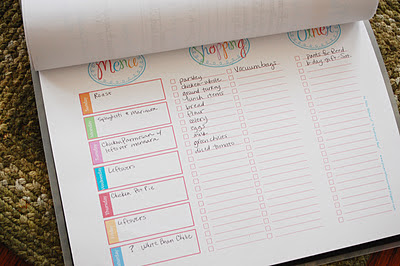 Menu
Shopping
Other
Roast
Spaghetti & marinara
Chicken Parmesan w/
leftover marinara
Leftovers
Chicken Pot Pie
Leftovers
? White Bean Chili
parsley
chicken - whole
ground turkey
lunch items
bread
flour
celery
eggs
milk
green chilies
diced tomatoes
Vacuum bags
pants for Reed
b-day gift - Sam